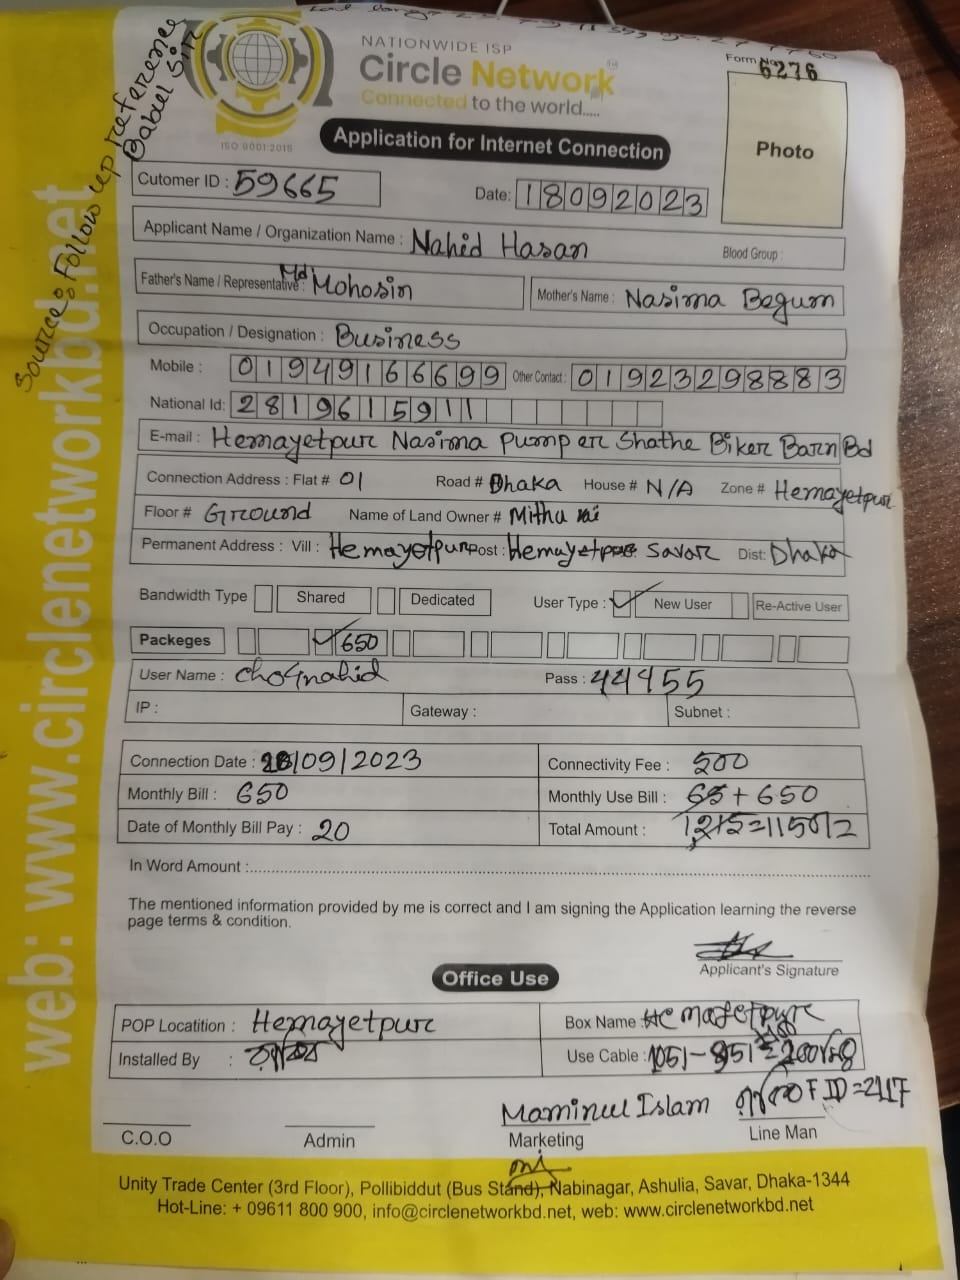 NATIONWIDE ISP
Circle Network
Connected to the world.....
ISO 9001:2015
Form No.
6276
Application for Internet Connection
Photo
Source: Follow up reference
Babul Sir
web: www.circlenetworkbd.net
Cutomer ID : 59665
Date: 18092023
Applicant Name / Organization Name : Nahid Hasan Blood Group :
Father's Name / Representative : Md Mohosin
Mother's Name : Nasima Begum
Occupation / Designation : Business
Mobile : 01949166699 Other Contact : 01923298883
National Id: 2819615911
E-mail : Hemayetpur Nasima Pump er Shathe Biker Barn Bd
Connection Address : Flat # 01 Road # Dhaka House # N/A Zone # Hemayetpur
Floor # Ground Name of Land Owner # Mitha
Permanent Address : Vill : Hemayetpur Post : Hemayetpur Savar Dist: Dhaka
Bandwidth Type Shared Dedicated User Type : New User Re-Active User
Packeges 650
User Name : cho4nahid Pass : 44455
IP : Gateway : Subnet :
Connection Date : /09/2023 Connectivity Fee : 500
Monthly Bill : 650 Monthly Use Bill : 65 + 650
Date of Monthly Bill Pay : 20 Total Amount : 1215=1150/2
In Word Amount :
The mentioned information provided by me is correct and I am signing the Application learning the reverse
page terms & condition.
Applicant's Signature
Office Use
POP Locatition : Hemayetpur Box Name : Hemayetpur
Installed By : Use Cable : 1051-851=200
Mominul Islam ID=2117
C.O.O Admin Marketing Line Man
Unity Trade Center (3rd Floor), Pollibiddut (Bus Stand), Nabinagar, Ashulia, Savar, Dhaka-1344
Hot-Line: + 09611 800 900, info@circlenetworkbd.net, web: www.circlenetworkbd.net